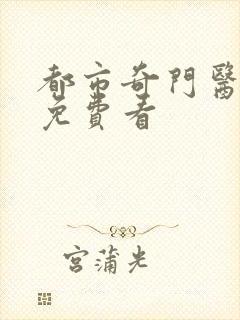 都市奇門醫
免費看
宮蒲光